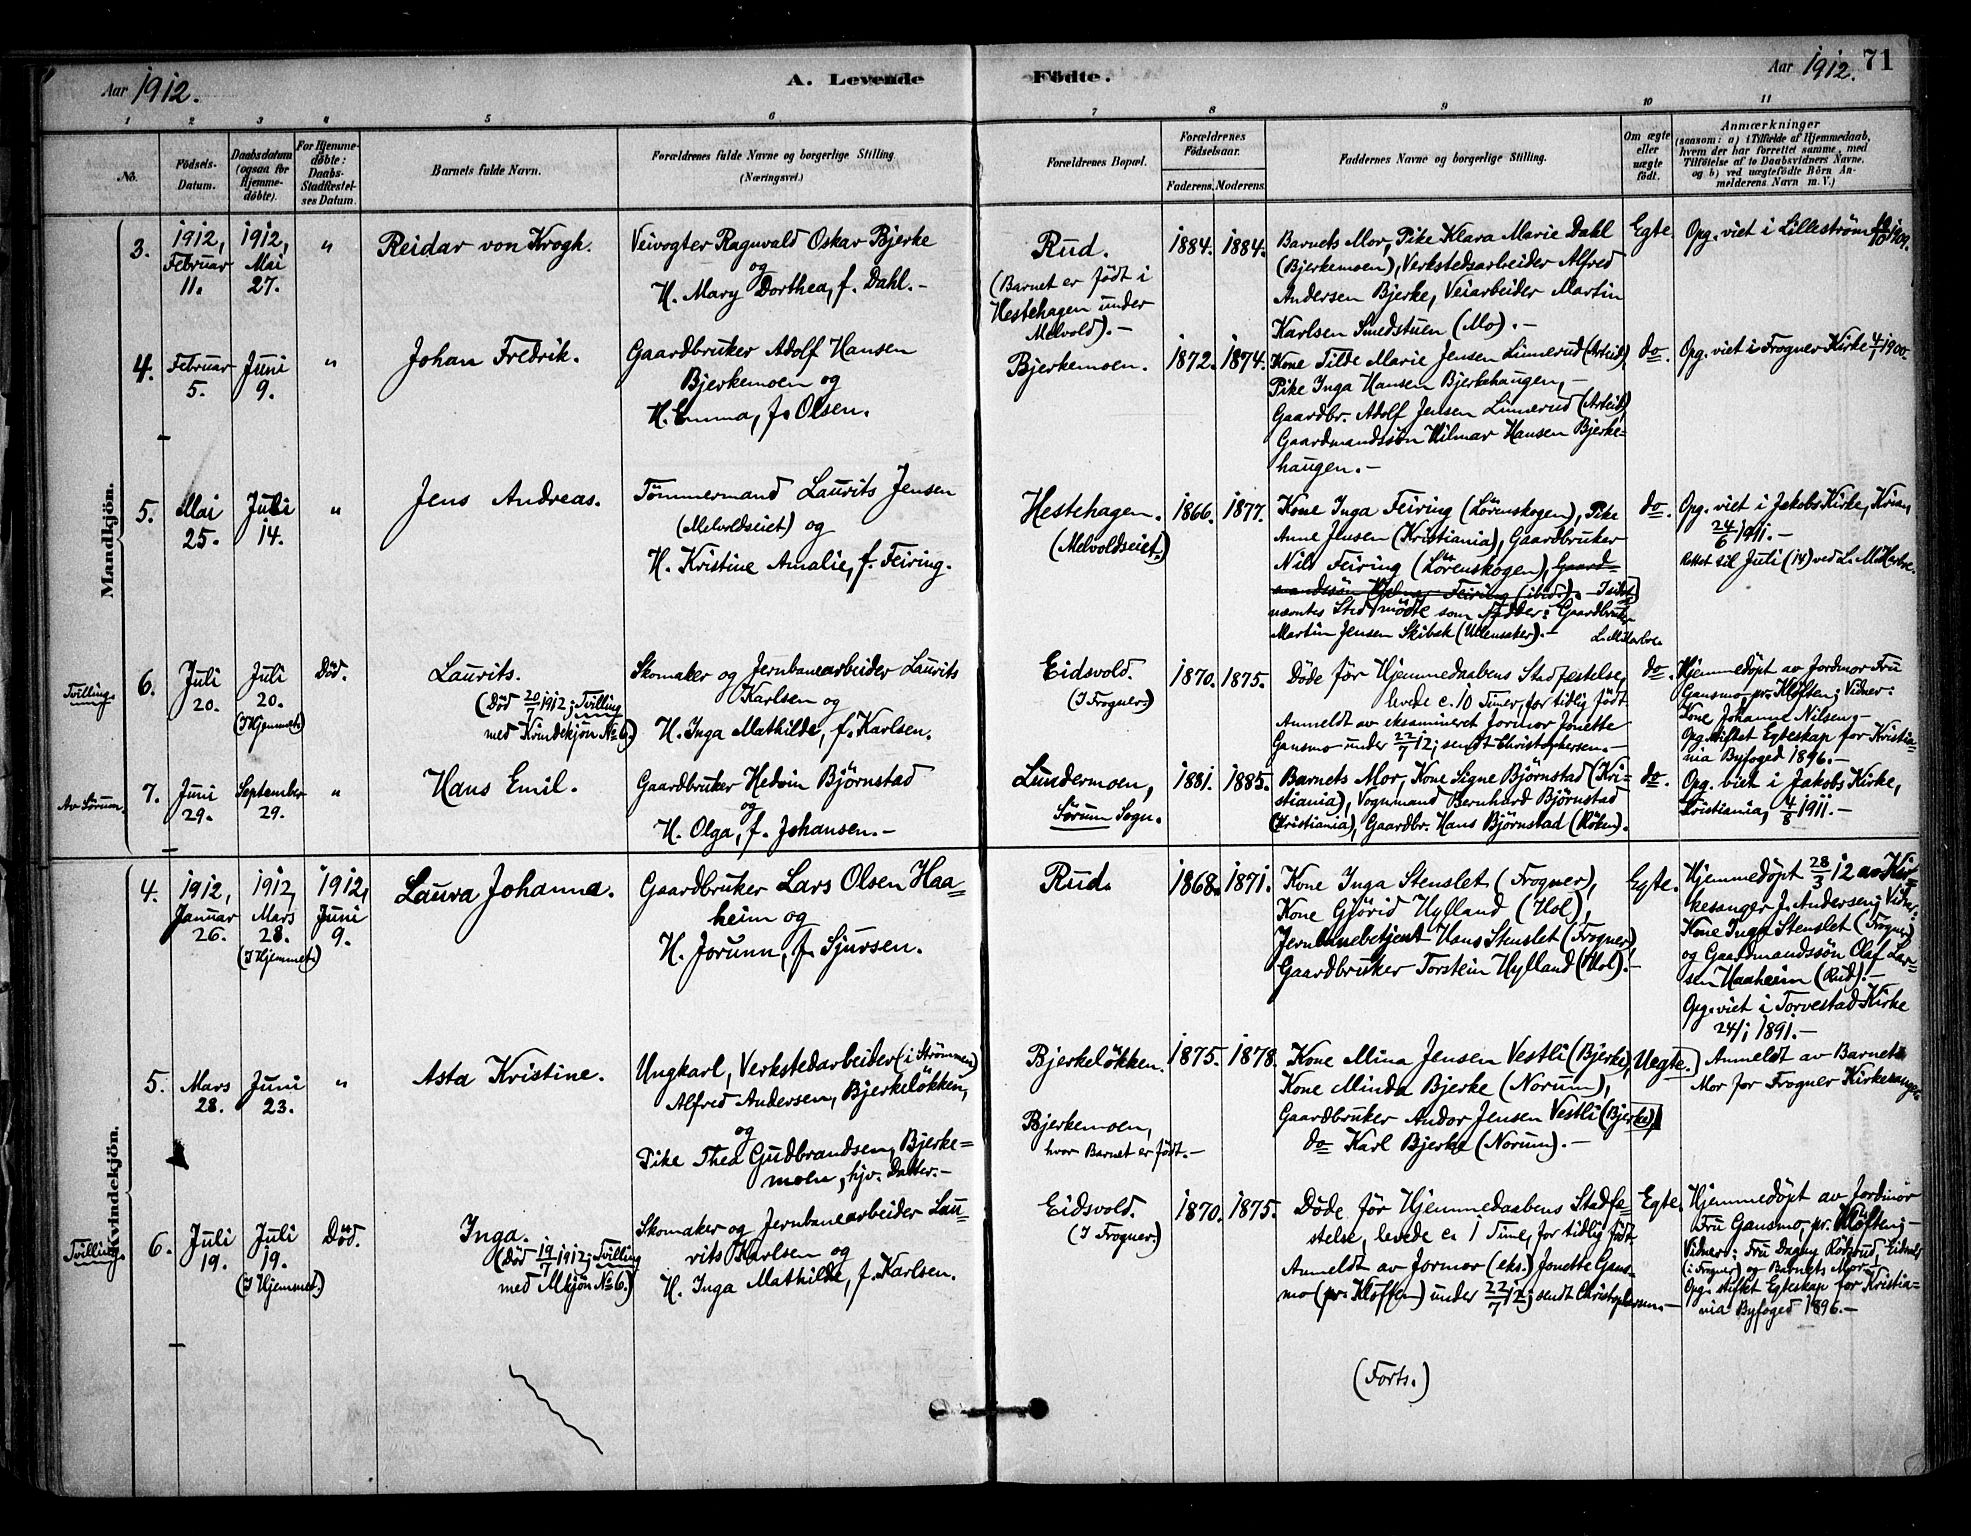 Aar 1912.
A. Levende Födte.
Aar 1912. 71
1 2 3 4 5 6 7 8 9 10 11
No.
Födsels-Datum.
Daabsdatum (ogsaa for Hjemme-döbte).
For Hjemme-döbte: Daabs-Stadfæstel-ses Datum.
Barnets fulde Navn.
Forældrenes fulde Navne og borgerlige Stilling.
(Næringsvei.)
Forældrenes Bopæl.
Forældrenes Födselsaar.
Faderens. Moderens.
Faddernes Navne og borgerlige Stilling.
Om ægte eller uægte födt.
Anmærkninger
(saasom: a) i Tilfælde af Hjemmedaab, hvem der har forrettet samme, med Tilföielse af to Daabsvidners Navne, og b) ved uægtefödte Börn An-melderens Navn m. V.)
Mandkjön.
3.
1912, Februar 11.
1912, Mai 27.
"
Reidar von Krogh.
Veivogter Ragnvald Oskar Bjerke
og
H. Mary Dorthea, f. Dahl.-
Rud.
(Barnet er födt i
Hestehagen under
Melvold).-
1884. 1884.
Barnets Mor, Pike Klara Marie Dahl
(Bjerkemoen), Verkstedsarbeider Alfred
Andersen Bjerke, Veiarbeider Martin
Karlsen Smedstuen (Mo).-
Egte.
Opg. viet i Lilleström 1909.
4.
Februar 5.
Juni 9.
"
Johan Fredrik.
Gaardbruker Adolf Hansen
Bjerkemoen og
H. Emma, f. Olsen.
Bjerkemoen.
1872. 1874.
Kone Tilde Marie Jensen Linnerud (Arteid),
Pike Inga Hansen Bjerkehaugen,-
Gaardbr. Adolf Jensen Linnerud (Arteid)
Gaardmandssön Hilmar Hansen Bjerke-
haugen.-
do.
Opg. viet i Frogner Kirke 4/1 1900.
5.
Mai 25.
Juli 14.
"
Jens Andreas.
Tömmermand Laurits Jensen
(Melvoldseiet) og
H. Kristine Amalie, f. Feiring.
Hestehagen.
(Melvoldseiet.)
1866. 1877.
Kone Inga Feiring (Lörenskogen), Pike
Anne Jensen (Kristiania), Gaardbruker
Nils Feiring (Lörenskogen), Gaard-
mandssön Feiring (ibid). - Isidst
nævntes Sted mödte som Fadder: Gaardbruker
Martin Jensen Skibak (Ullensaker).-
do.
Opg. viet i Jakobs Kirke, Krian,
24/6 1911.-
Rettet til Juli (14) ved
Tvilling
6.
Juli 20.
Juli 20.
(I Hjemmet)
Död.
Laurits.
(Död 20/7 1912; Tvilling
med Kvindekjön No 6.)
Skomaker og Jernbanearbeider Laurits
Karlsen og
H. Inga Mathilde, f. Karlsen.
Eidsvold.
(I Frogner.)
1870. 1875.
Döde för Hjemmedaabens Stadfæstelse,
levede c. 10 Timer, for tidlig födt.
Anmeldt av eksamineret Jormor Jonette
Gansmo under 22/7 12; sendt Christophersen.-
do.
Hjemmedöpt av Jordmor Fru
Gansmo pr. Klöften; Vidner:
Kone Johanne Nilsen,-
Opg. stiftet Egteskap for Kristia-
nia Byfoged 1896.-
Av Sörum.
7.
Juni 29.
September 29.
"
Hans Emil.
Gaardbruker Hedvin Björnstad
og
H. Olga, f. Johansen.-
Lundermoen,
Sörum Sogn.
1881. 1885.
Barnets Mor, Kone Signe Björnstad (Kri-
stiania), Vognmand Bernhard Björnstad
(Kristiania), Gaardbr. Hans Björnstad (Röken).
do.
Opg. viet i Jakobs Kirke,
Kristiania, 4/8 1911.-
Kvindekjön.
4.
1912, Januar 26.
1912, Mars 28.
(I Hjemmet.)
1912, Juni 9.
Laura Johanna.
Gaardbruker Lars Olsen Haa-
heim og
H. Jorunn, f. Sjursen.
Rud.
1868. 1871.
Kone Inga Stenslet (Frogner),
Kone Gjörid Hylland (Hol),
Jernbanebetjent Hans Stenslet (Frogner),
Gaardbruker Torstein Hylland (Hol).-
Egte.
Hjemmedöpt 28/3 12 av Kir-
kesanger J. Andersen; Vidner:
Kone Inga Stenslet (Frogner)
og Gaardmandssön Olaf Lar-
sen Haaheim (Rud).-
Opg. viet i Torvestad Kirke
24/1 1891.-
5.
Mars 28.
Juni 23.
"
Asta Kristine.
Ungkarl, Verkstedarbeider (i Strömmen)
Alfred Andersen, Bjerkelökken,
og
Pike Thea Gudbrandsen, Bjerke-
moen, hjv. Datter.-
Bjerkelökken.
Bjerkemoen,
hvor Barnet er födt.-
1875. 1878.
Kone Mina Jensen Vestli (Bjerke),
Kone Minda Bjerke (Norum),
Gaardbruker Andor Jensen Vestli (Bjerke),
do Karl Bjerke (Norum).-
Uegte.
Anmeldt av Barnets
Mor for Frogner Kirkesanger.
Tvilling.
6.
Juli 19.
Juli 19.
(I Hjemmet.)
Död.
Inga.
(Död 19/7 1912; Tvilling
med Mkjön No 6.)
Skomaker og Jernbanearbeider Lau-
rits Karlsen og
H. Inga Mathilde, f. Karlsen.
Eidsvold.
(I Frogner.)
1870. 1875.
Döde för Hjemmedaabens Stadfæ-
stelse, levede c. 1 Time, for tidlig födt.
Anmeldt av Jormor (eks.) Jonette Gans-
mo (pr. Klöften) under 22/7 12; sendt Christophersen.-
Egte.
Hjemmedöpt av Jordmor
Fru Gansmo, pr. Klöften;-
Vidner: Fru Dagny Rödsrud, Eidsvold
(i Frogner) og Barnets Mor.-
Opg. stiftet Egteskap for Kristia-
nia Byfoged 1896.-
(Forts.)